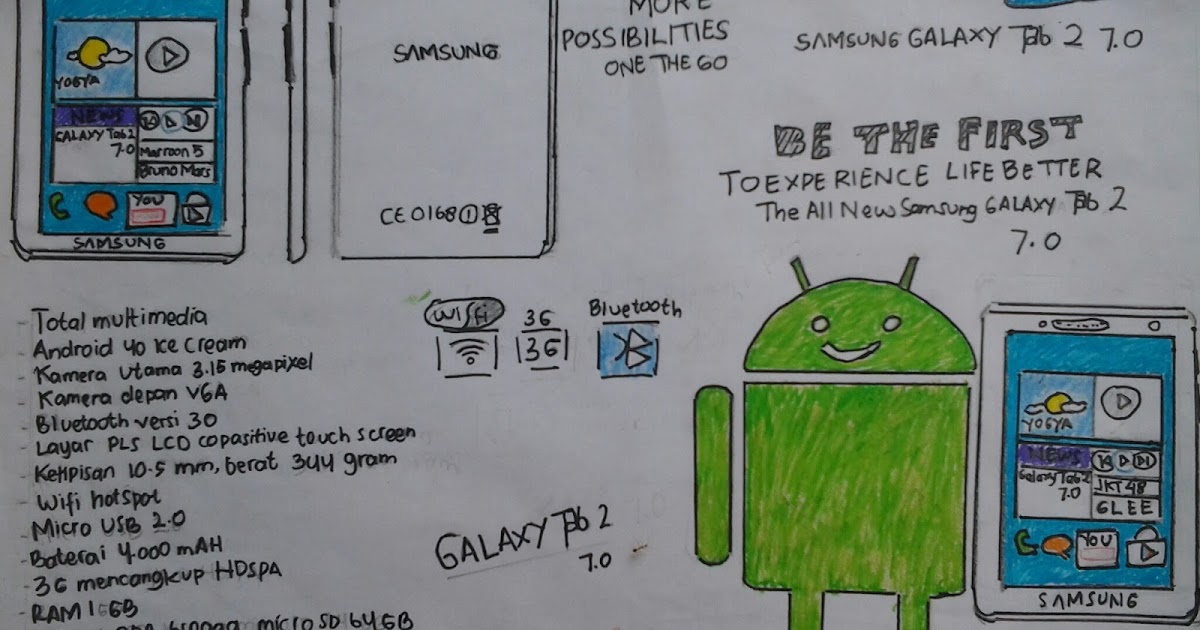 MORE
POSSIBILITIES
ONE THE GO
SAMSUNG
CE0168
SAMSUNG GALAXY Tab 2 7.0
BE THE FIRST
TO EXPERIENCE LIFE BETTER
The All New Samsung GALAXY Tab 2
7.0
YOGYA
NEWS
GALAXY Tab 2
7.0
Marroon 5
Bruno Mars
YOU
SAMSUNG
- Total multimedia
- Android 40 Ice Cream
- Kamera Utama 3.15 megapixel
- Kamera depan VGA
- Bluetooth versi 30
- Layar PLS LCD copasitive touch screen
- Ketipisan 10.5 mm, berat 344 gram
- Wifi hotspot
- Micro USB 2.0
- Baterai 4.000 mAH
- 3G mencangkup HDSPA
- RAM 1 GB
hingga micro SD 64 GB
Wifi
3G
3G
Bluetooth
GALAXY Tab 2
7.0
YOGYA
NEWS
Galaxy Tab 2
7.0
JKT 48
GLEE
YOU
SAMSUNG